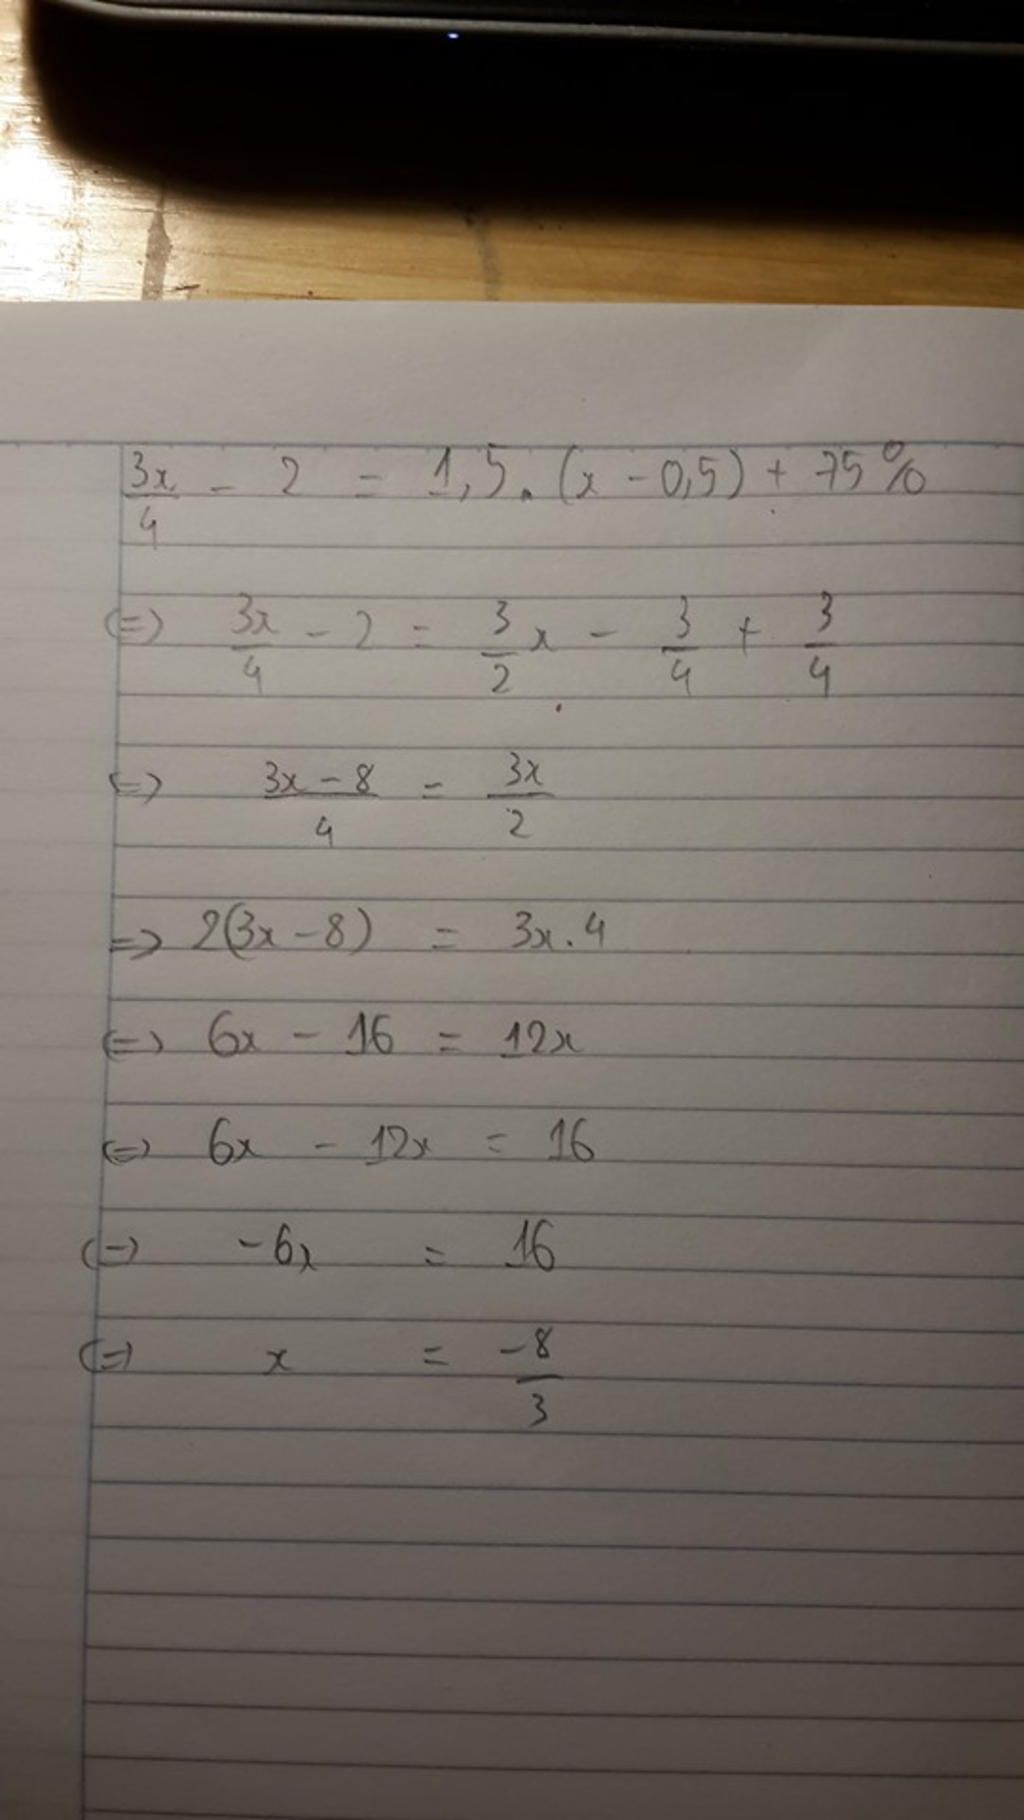 3x/4 - 2 = 1,5.(x - 0,5) + 75%
(=) 3x/4 - 2 = 3/2 x - 3/4 + 3/4
(=) 3x - 8/4 = 3x/2
=> 2(3x - 8) = 3x.4
(=) 6x - 16 = 12x
(=) 6x - 12x = 16
(=) -6x = 16
(=) x = -8/3